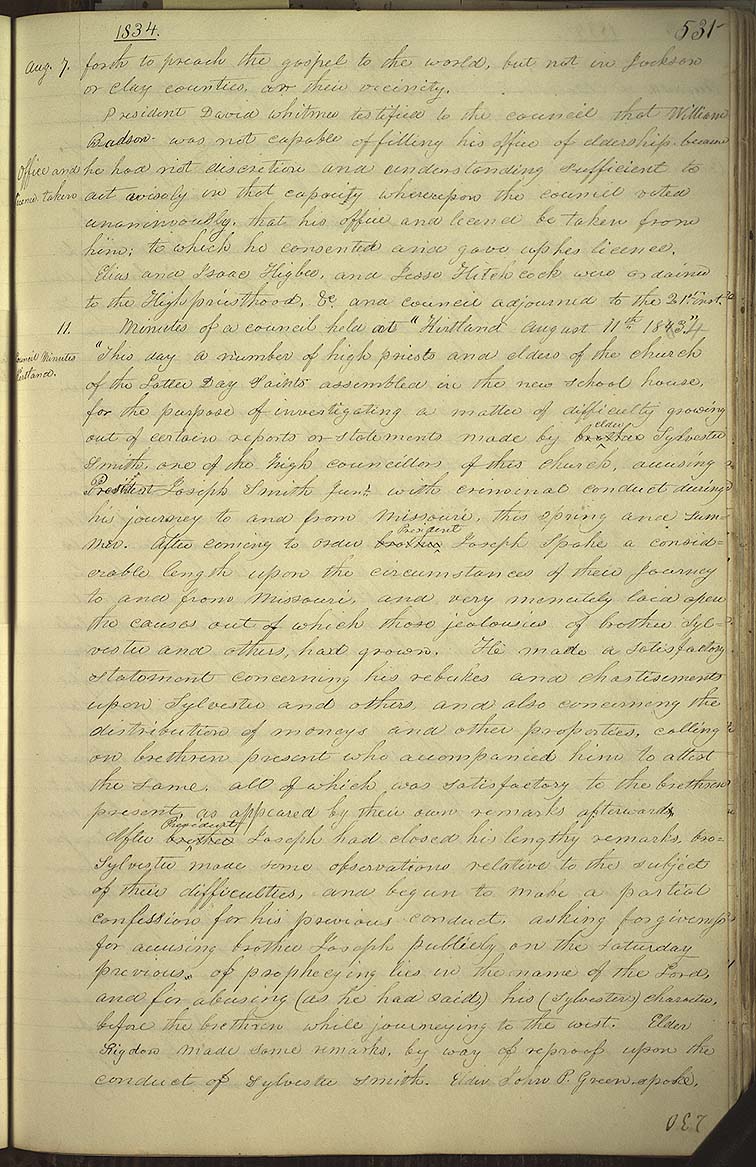 1834.
531
Aug. 7. forth to preach the gospel to the world, but not in Jackson
or Clay counties, or their vicinity.
President David Whitmer testified to the council that William
Batson was not capable of filling his office of eldership because
Office and he had not discretion and understanding sufficient to
licence taken act wisely in that capacity whereupon the council voted
unanimously, that his office and licence be taken from
him; to which he consented and gave up his licence.
Elias and Isaac Higbee, and Jesse Hitchcock were ordained
to the High priesthood, &c. and council adjourned to the 21st inst.
11. Minutes of a council held at "Kirtland August 11th 1834.
Council Minutes "This day a number of high priests and elders of the church
Kirtland. of the Latter Day Saints assembled in the new school house,
for the purpose of investigating a matter of difficulty growing
out of certain reports or statements made by brother elder Sylvester
Smith, one of the high councillors of this church, accusing
President Joseph Smith Junr. with criminal conduct during
his journey to and from Missouri, this spring and sum=
mer. After coming to order brother President Joseph spoke a consid=
erable length upon the circumstances of their journey
to and from Missouri, and very minutely laid open
the causes out of which those jealousies of brother Syl=
vester and others, had grown. He made a satisfactory
statement concerning his rebukes and chastisements
upon Sylvester and others, and also concerning the
distribution of moneys and other properties, calling
on brethren present who accompanied him to attest
the same, all of which was satisfactory to the brethren
present, as appeared by their own remarks afterwards,
After brother President Joseph had closed his lengthy remarks, bro=
Sylvester made some observations relative to the subject
of their difficulties, and begun to make a partial
confession for his previous conduct, asking forgiveness
for accusing brother Joseph publickly on the Saturday
previous, of prophecying lies in the name of the Lord,
and for abusing (as he had said,) his (Sylvester) character,
before the brethren while journeying to the west. Elder
Rigdon made some remarks, by way of reproof upon the
conduct of Sylvester Smith. Elder John P. Green, spoke,